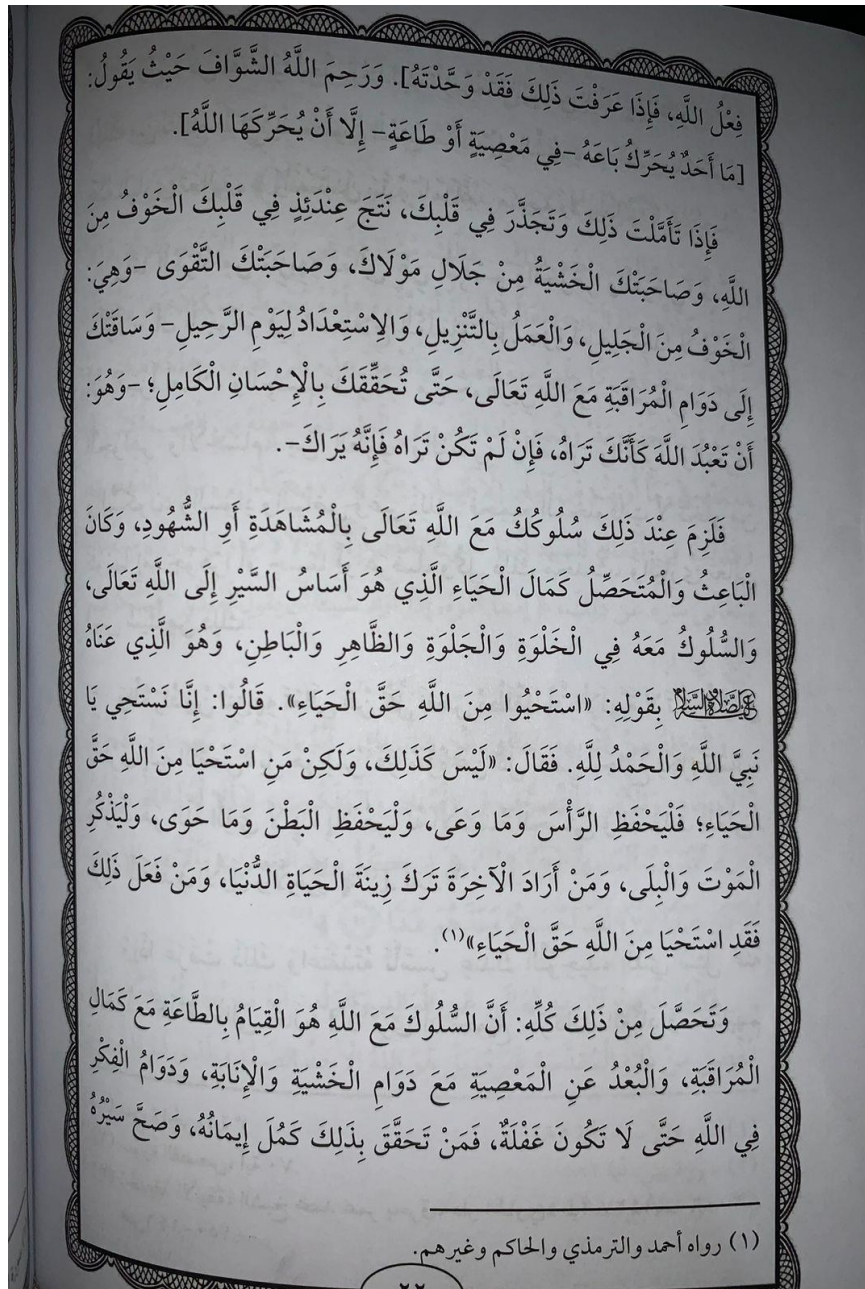 فِعْلُ اللَّهِ، فَإِذَا عَرَفْتَ ذَلِكَ فَقَدْ وَحَّدْتَهُ]. وَرَحِمَ اللَّهُ الشَّوَّافَ حَيْثُ يَقُولُ:
[مَا أَحَدٌ يُحَرِّكُ بَاعَهُ -فِي مَعْصِيَةٍ أَوْ طَاعَةٍ- إِلَّا أَنْ يُحَرِّكَهَا اللَّهُ].
فَإِذَا تَأَمَّلْتَ ذَلِكَ وَتَجَذَّرَ فِي قَلْبِكَ، نَتَجَ عِنْدَئِذٍ فِي قَلْبِكَ الْخَوْفُ مِنَ
اللَّهِ، وَصَاحَبَتْكَ الْخَشْيَةُ مِنْ جَلَالِ مَوْلَاكَ، وَصَاحَبَتْكَ التَّقْوَى -وَهِيَ:
الْخَوْفُ مِنَ الْجَلِيلِ، وَالْعَمَلُ بِالتَّنْزِيلِ، وَالِاسْتِعْدَادُ لِيَوْمِ الرَّحِيلِ- وَسَاقَتْكَ
إِلَى دَوَامِ الْمُرَاقَبَةِ مَعَ اللَّهِ تَعَالَى، حَتَّى تُحَقِّقَكَ بِالْإِحْسَانِ الْكَامِلِ؛ -وَهُوَ:
أَنْ تَعْبُدَ اللَّهَ كَأَنَّكَ تَرَاهُ، فَإِنْ لَمْ تَكُنْ تَرَاهُ فَإِنَّهُ يَرَاكَ-.
فَلَزِمَ عِنْدَ ذَلِكَ سُلُوكُكَ مَعَ اللَّهِ تَعَالَى بِالْمُشَاهَدَةِ أَوِ الشُّهُودِ، وَكَانَ
الْبَاعِثُ وَالْمُتَحَصِّلُ كَمَالَ الْحَيَاءِ الَّذِي هُوَ أَسَاسُ السَّيْرِ إِلَى اللَّهِ تَعَالَى،
وَالسُّلُوكُ مَعَهُ فِي الْخَلْوَةِ وَالْجَلْوَةِ وَالظَّاهِرِ وَالْبَاطِنِ، وَهُوَ الَّذِي عَنَاهُ
عَلَيْهِ الصَّلَاةُ وَالسَّلَامُ بِقَوْلِهِ: «اسْتَحْيُوا مِنَ اللَّهِ حَقَّ الْحَيَاءِ». قَالُوا: إِنَّا نَسْتَحِي يَا
نَبِيَّ اللَّهِ وَالْحَمْدُ لِلَّهِ. فَقَالَ: «لَيْسَ كَذَلِكَ، وَلَكِنْ مَنِ اسْتَحْيَا مِنَ اللَّهِ حَقَّ
الْحَيَاءِ؛ فَلْيَحْفَظِ الرَّأْسَ وَمَا وَعَى، وَلْيَحْفَظِ الْبَطْنَ وَمَا حَوَى، وَلْيَذْكُرِ
الْمَوْتَ وَالْبِلَى، وَمَنْ أَرَادَ الْآخِرَةَ تَرَكَ زِينَةَ الْحَيَاةِ الدُّنْيَا، وَمَنْ فَعَلَ ذَلِكَ
فَقَدِ اسْتَحْيَا مِنَ اللَّهِ حَقَّ الْحَيَاءِ»(١).
وَتَحَصَّلَ مِنْ ذَلِكَ كُلِّهِ: أَنَّ السُّلُوكَ مَعَ اللَّهِ هُوَ الْقِيَامُ بِالطَّاعَةِ مَعَ كَمَالِ
الْمُرَاقَبَةِ، وَالْبُعْدُ عَنِ الْمَعْصِيَةِ مَعَ دَوَامِ الْخَشْيَةِ وَالْإِنَابَةِ، وَدَوَامُ الْفِكْرِ
فِي اللَّهِ حَتَّى لَا تَكُونَ غَفْلَةٌ، فَمَنْ تَحَقَّقَ بِذَلِكَ كَمُلَ إِيمَانُهُ، وَصَحَّ سَيْرُهُ
(١) رواه أحمد والترمذي والحاكم وغيرهم.